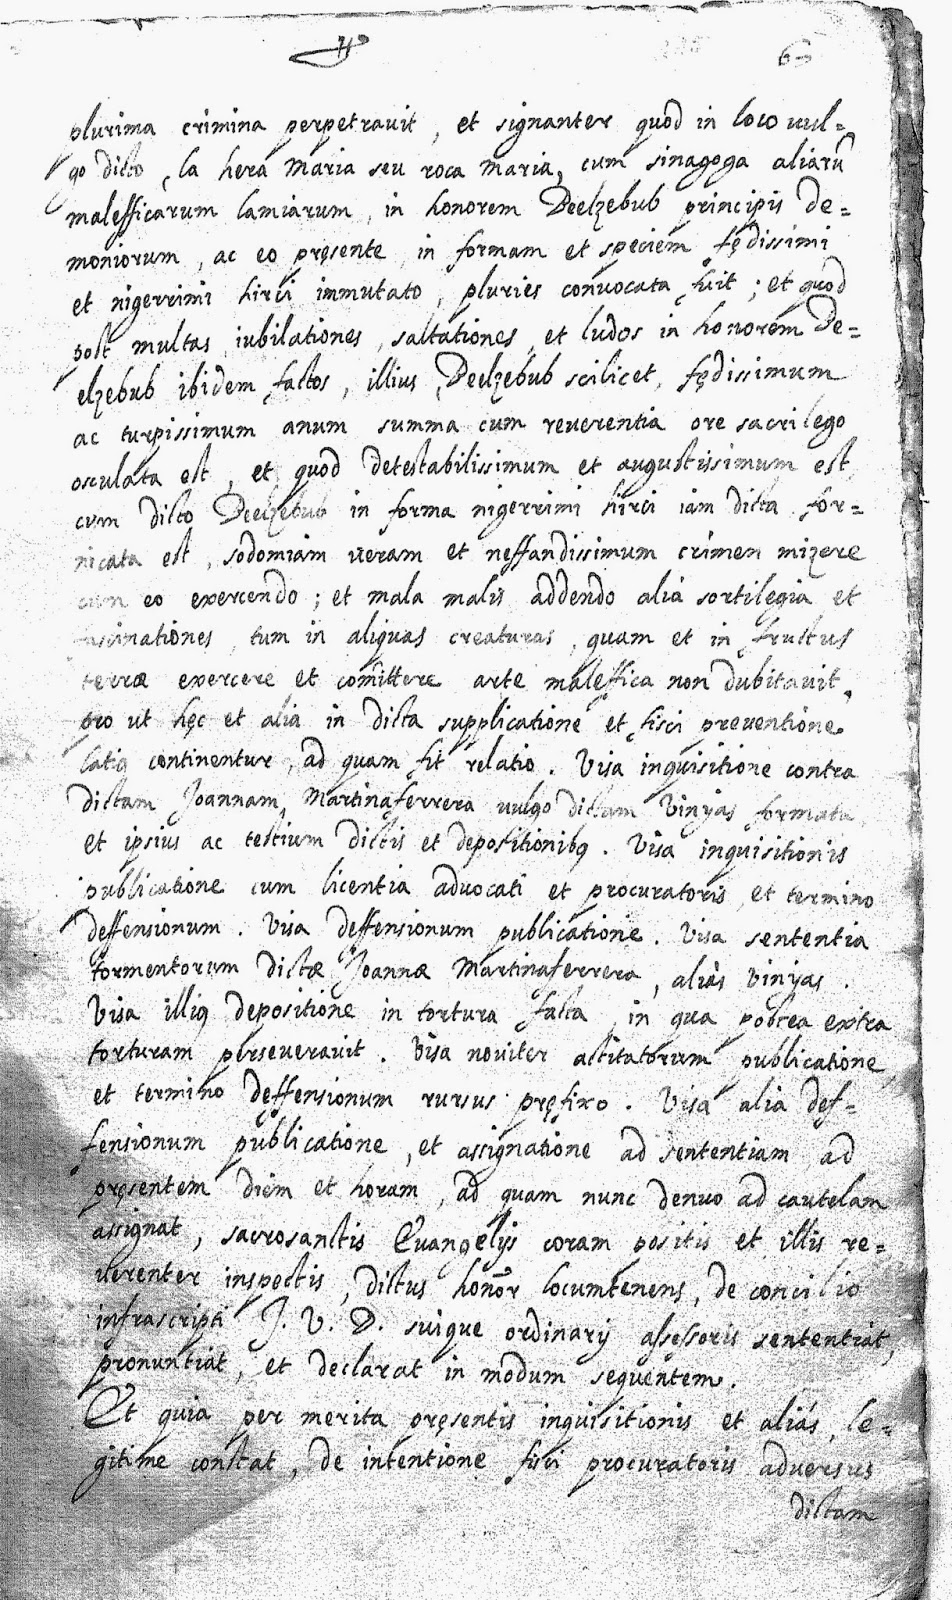 6
plurima crimina perpetravit, et signanter quod in loco vul-
go dicto, la hera Maria seu roca Maria, cum sinagoga aliarū
malefficarum lamiarum, in honorem Deelzebub principis De=
moniorum, ac eo pręsente, in formam et speciem fędissimi
et nigerrimi hirci immutato, pluries convocata fuit; et quod
post multas iubilationes, saltationes, et ludos in honorem De=
elzebub ibidem factos, illius, Deelzebub scilicet, fędissimum
ac turpissimum anum summa cum reverentia ore sacrilego
osculata est, et quod detestabilissimum et augustissimum est
cum dicto Deelzebub in forma nigerrimi hirci iam dicta for-
nicata est, sodomiam veram et neffandissimum crimen mizere
cum eo exercendo; et mala malis addendo alia sortilegia et
fascinationes, tum in aliquas creaturas, quam et in fructus
terræ exercere et com̄ittere arte maleffica non dubitavit,
pro ut hęc et alia in dicta supplicatione et fisci preventione
latiq continentur, ad quam fit relatio. Visa inquisitione contra
dictam Joannam, Martinaferrera vulgo dictam Vinyas formata
et ipsius ac testium dictis et depositionibq. Visa inquisitionis
publicatione cum licentia advocati et procuratoris, et termino
deffensionum. Visa deffensionum publicatione. Visa sententia
tormentorum dictæ Joannæ Martinaferrera, aliàs Vinyas.
Visa illiq depositione in tortura facta, in qua postea extra
torturam perseveravit. Visa noviter actitatorum publicatione,
et termino deffensionum rursus pręfixo. Visa alia def-
fensionum publicatione, et assignatione ad sententiam ad
pręsentem diem et horam, ad quam nunc denuo ad cautelam
assignat, sacrosanctis Evangelijs coram positis et illis re=
verenter inspectis, dictus honōr locumtenens, de concilio
infrascripti J. V. D. suique ordinarij assessoris sententiat,
pronuntiat, et declarat in modum sequentem.
Et quia per merita pręsentis inquisitionis et aliàs, le-
gitime constat, de intentione fisci procuratoris adversus
dictam